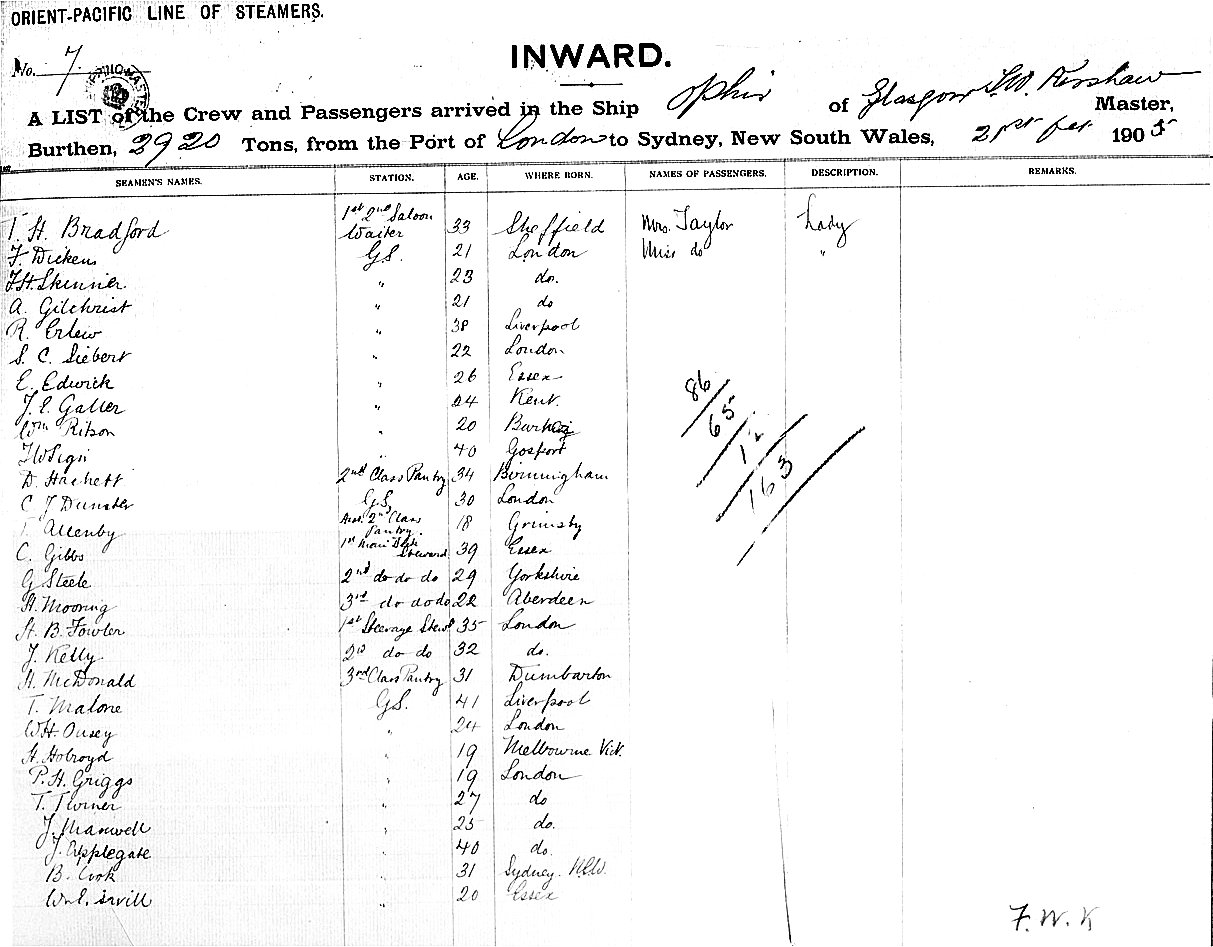 ORIENT-PACIFIC LINE OF STEAMERS.
No. 7.
INWARD.
A LIST of the Crew and Passengers arrived in the Ship Ophir of Glasgow F.W. Kershaw Master,
Burthen, 3920 Tons, from the Port of London to Sydney, New South Wales, 21st 1905
SEAMEN'S NAMES. STATION. AGE. WHERE BORN. NAMES OF PASSENGERS. DESCRIPTION. REMARKS.
T. H. Bradford 1st 2nd Saloon Waiter 33 Sheffield Mrs. Taylor Lady
F. Dickens G.S. 21 London Miss do "
F.H. Skinner " 23 do.
A. Gilchrist " 21 do
R. Erlew " 38 Liverpool
S. C. Siebert " 22 London
E. Edwick " 26 Essex
J. E. Galler " 24 Kent
Wm Ritson " 20
" 40 Gosport
D. Hackett 2nd Class Pantry 34 Birmingham
C J Dunster G.S. 30 London
T. Allenby Asst. 2nd Class Pantry. 18 Grimsby
C. Gibbs 1st Steward 39 Essex
G Steele 2nd do do do 29 Yorkshire
H. Mooring 3rd do do do 22 Aberdeen
H. B. Fowler 1st Steerage Stewd 35 London
J. Kelly 2nd do do 32 do.
H. McDonald 3rd Class Pantry 31 Dumbarton
T. Malone G.S. 41 Liverpool
W.H. Ousey " 24 London
H. Holroyd " 19 Melbourne Vict.
P. H. Griggs " 19 London
T. Turner " 27 do
J. Maxwell " 25 do.
J. Applegate " 40 do.
B. Cook " 31 Sydney. N.S.W.
" 20 Essex
86
65
12
163
F. W. K